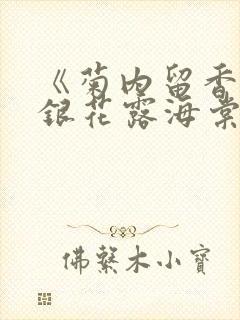 《菊内留香
銀花露海棠
佛繫木小寶